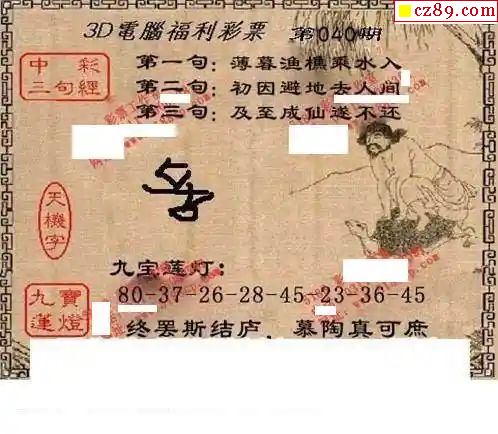 cz89.com
3D電腦福利彩票 第040期
中彩三句經
第一句：薄暮渔樵乘水入
第二句：初因避地去人间
第三句：及至成仙遂不还
天機字
九宝莲灯：
九寶蓮燈
80-37-26-28-45-23-36-45
终罢斯结庐，慕陶真可庶